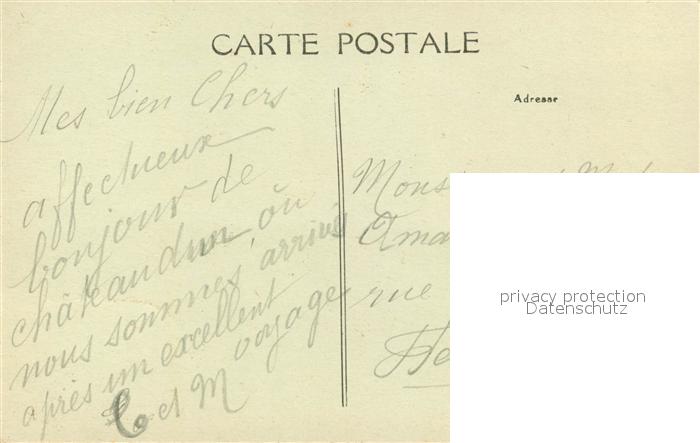 CARTE POSTALE
Mes bien Chers
affectueux
bonjour de
châteaudun, où
nous sommes arrivé
après un excellent
voyage
C. et M
Adresse
rue
privacy protection
Datenschutz